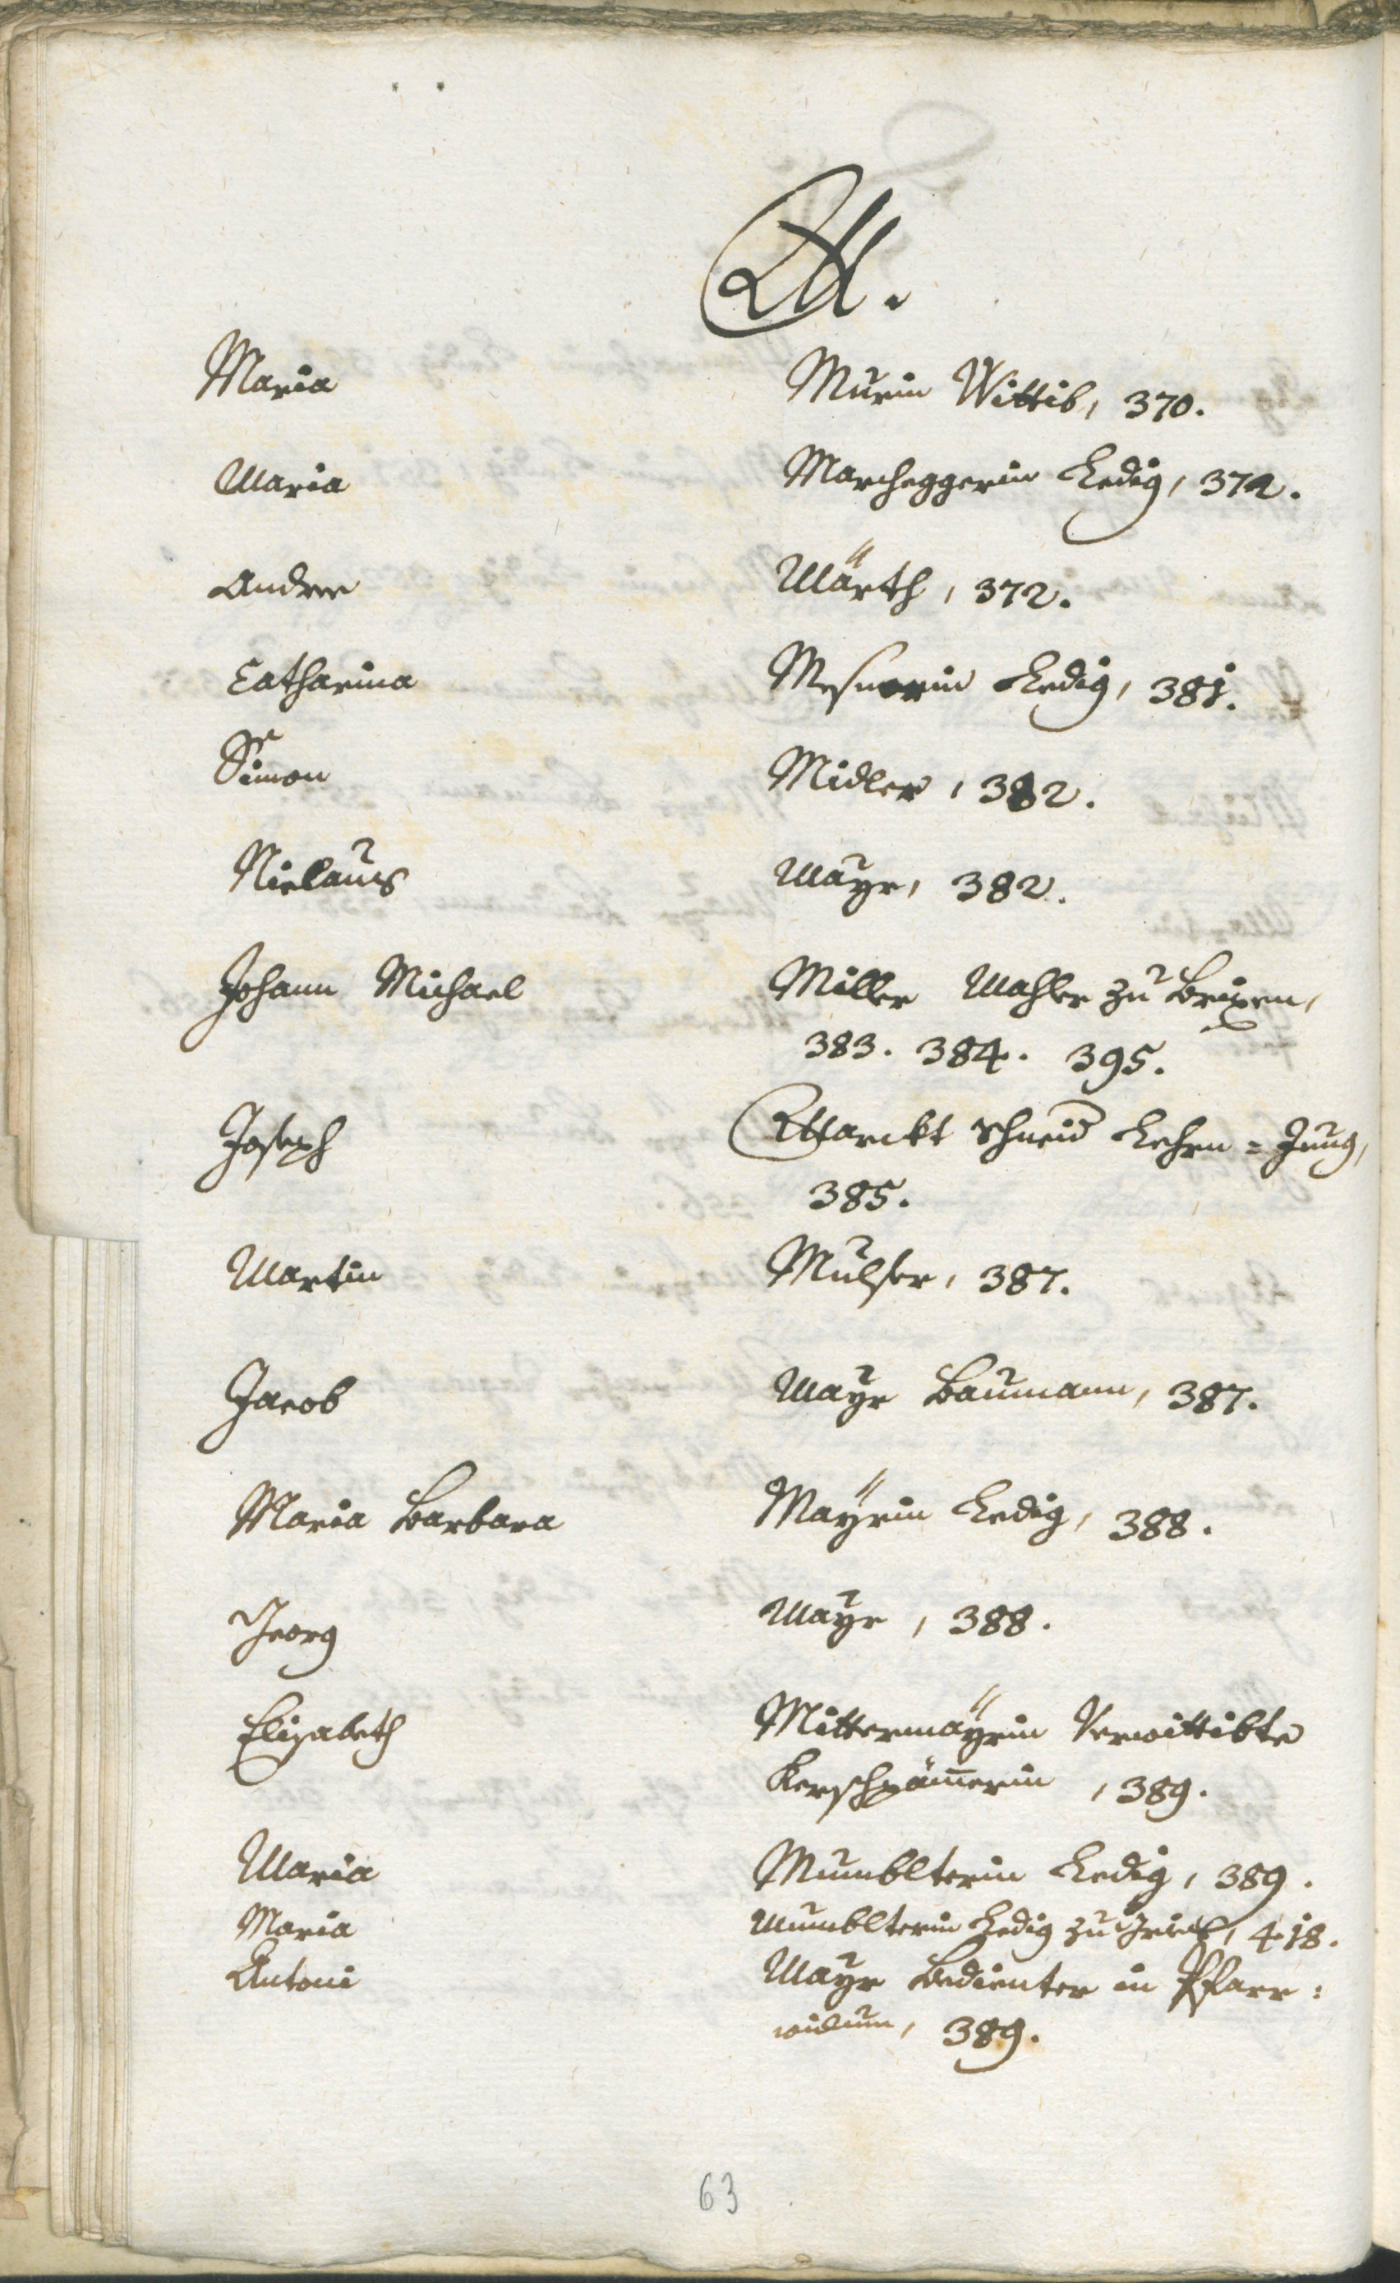 M.
Maria Murin Wittib, 370.
Maria Marcheggerin Ledig, 372.
Andree Märth, 372.
Catharina Mesnerin Ledig, 381.
Simon Midler, 382.
Niclaus Mayr, 382.
Johann Michael Miller Mahler zu Brixen,
383. 384. 395.
Joseph Marckt Schneid Lehrn=Jung,
385.
Martin Mulser, 387.
Jacob Mayr Baumann, 387.
Maria Barbara Maÿrin Ledig, 388.
Georg Mayr, 388.
Elizabeth Mittermaÿrin Verwittibte
Kerschpämerin, 389.
Maria Mumblterin Ledig, 389.
Maria Mumblterin Ledig zu 418.
Antoni Mayr Bedienter in Pfarr:
widum, 389.
63